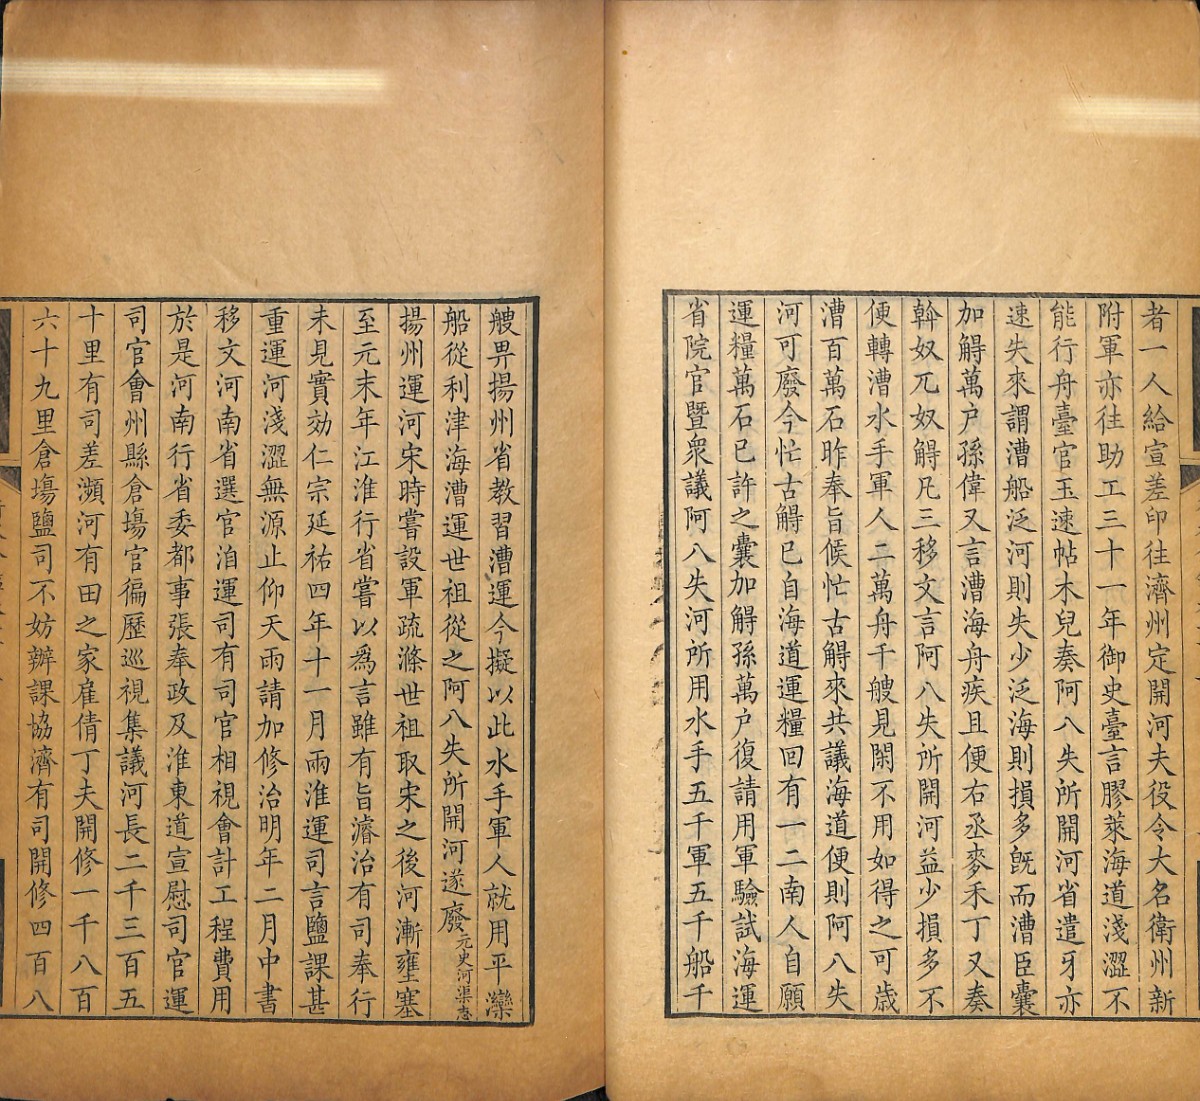 者一人給宣差印往濟州定開河夫役令大名衛州新
附軍亦往助工三十一年御史臺言膠萊海道淺澀不
能行舟臺官玉速帖木兒奏阿八失所開河省遣牙亦
速失來謂漕船泛河則失少泛海則損多旣而漕臣囊
加䚟萬户孫偉又言漕海舟疾且便右丞麥禾丁又奏
斡奴兀奴䚟凡三移文言阿八失所開河益少損多不
便轉漕水手軍人二萬舟千艘見閑不用如得之可歳
漕百萬石昨奉旨候忙古䚟來共議海道便則阿八失
河可廢今忙古䚟已自海道運糧回有一二南人自願
運糧萬石已許之囊加䚟孫萬户復請用軍驗試海運
省院官暨衆議阿八失河所用水手五千軍五千船千
艘畀揚州省教習漕運今擬以此水手軍人就用平灤
船從利津海漕運世祖從之阿八失所開河遂廢元史河渠志
揚州運河宋時嘗設軍疏滌世祖取宋之後河漸壅塞
至元末年江淮行省嘗以爲言雖有旨濬治有司奉行
未見實効仁宗延祐四年十一月兩淮運司言鹽課甚
重運河淺澀無源止仰天雨請加修治明年二月中書
移文河南省選官洎運司有司官相視會計工程費用
於是河南行省委都事張奉政及淮東道宣慰司官運
司官會州縣倉塲官徧歷巡視集議河長二千三百五
十里有司差瀕河有田之家雇倩丁夫開修一千八百
六十九里倉塲鹽司不妨辦課協濟有司開修四百八